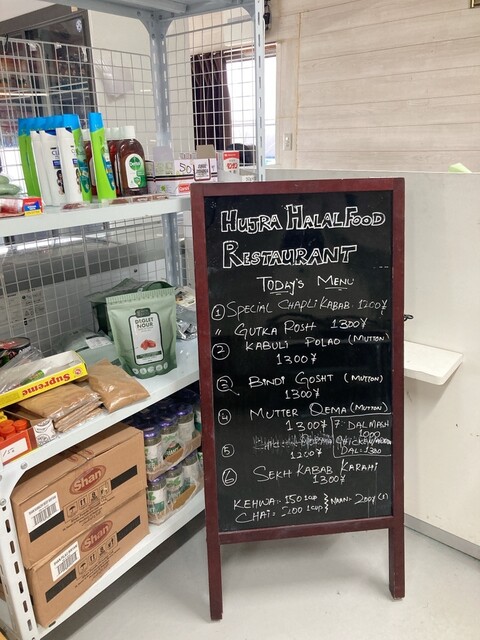 HUJRA HALAL FOOD
RESTAURANT
TODAY'S MENU
① SPECIAL CHAPLI KABAB. 1200¥
" GUTKA POSH 1300¥
② KABULI POLAO (MUTTON)
1300¥
③ BINDI GOSHT (MUTTON)
1300¥
④ MUTTER QEMA (MUTTON)
1300¥
7. DALMASH
1000
⑤
1200¥
DAL=1300
⑥ SEKH KABAB KARAHI
1300¥
KEHWA=150 1CUP
CHAI=200 1CUP
NAAN=200¥(1)
DEGLET
NOUR
Supreme
Shan
Shan
50